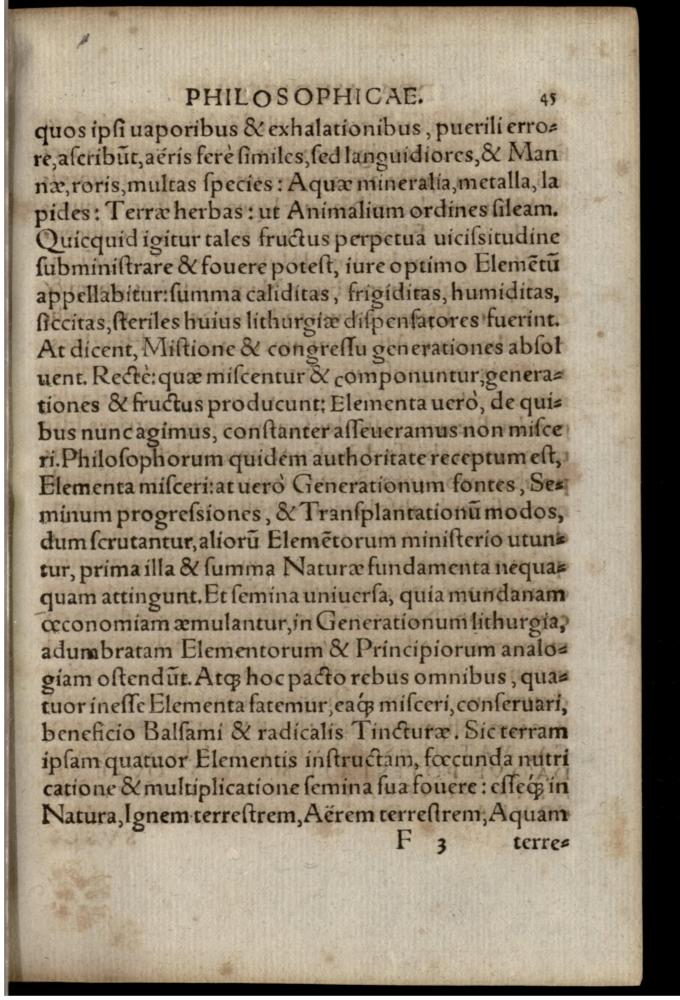 PHILOSOPHICAE. 45
quos ipſi uaporibus & exhalationibus, puerili erro⸗
re, aſcribūt, aëris ferè ſimiles, ſed languidiores, & Man
næ, roris, multas ſpecies: Aquæ mineralia, metalla, la
pides: Terræ herbas: ut Animalium ordines ſileam.
Quicquid igitur tales fructus perpetua uiciſsitudine
ſubminiſtrare & fouere poteſt, iure optimo Elemētū
appellabitur: ſumma caliditas, frigiditas, humiditas,
ſiccitas, ſteriles huius lithurgiæ diſpenſatores fuerint.
At dicent, Miſtione & congreſſu generationes abſol
uent. Rectè: quæ miſcentur & componuntur, genera⸗
tiones & fructus producunt: Elementa uerò, de qui⸗
bus nunc agimus, conſtanter aſſeueramus non miſce
ri. Philoſophorum quidem authoritate receptum eſt,
Elementa miſceri: at uerò Generationum fontes, Se⸗
minum progreſsiones, & Tranſplantationū modos,
dum ſcrutantur, aliorū Elemētorum miniſterio utun⸗
tur, prima illa & ſumma Naturæ fundamenta nequa⸗
quam attingunt. Et ſemina uniuerſa, quia mundanam
œconomiam æmulantur, in Generationum lithurgia,
adumbratam Elementorum & Principiorum analo⸗
giam oſtendūt. Atqꝫ hoc pacto rebus omnibus, qua⸗
tuor ineſſe Elementa fatemur, eaqꝫ́ miſceri, conſeruari,
beneficio Balſami & radicalis Tincturæ. Sic terram
ipſam quatuor Elementis inſtructam, fœcunda nutri
catione & multiplicatione ſemina ſua fouere: eſſeqꝫ́ in
Natura, Ignem terreſtrem, Aërem terreſtrem, Aquam
F 3 terre⸗